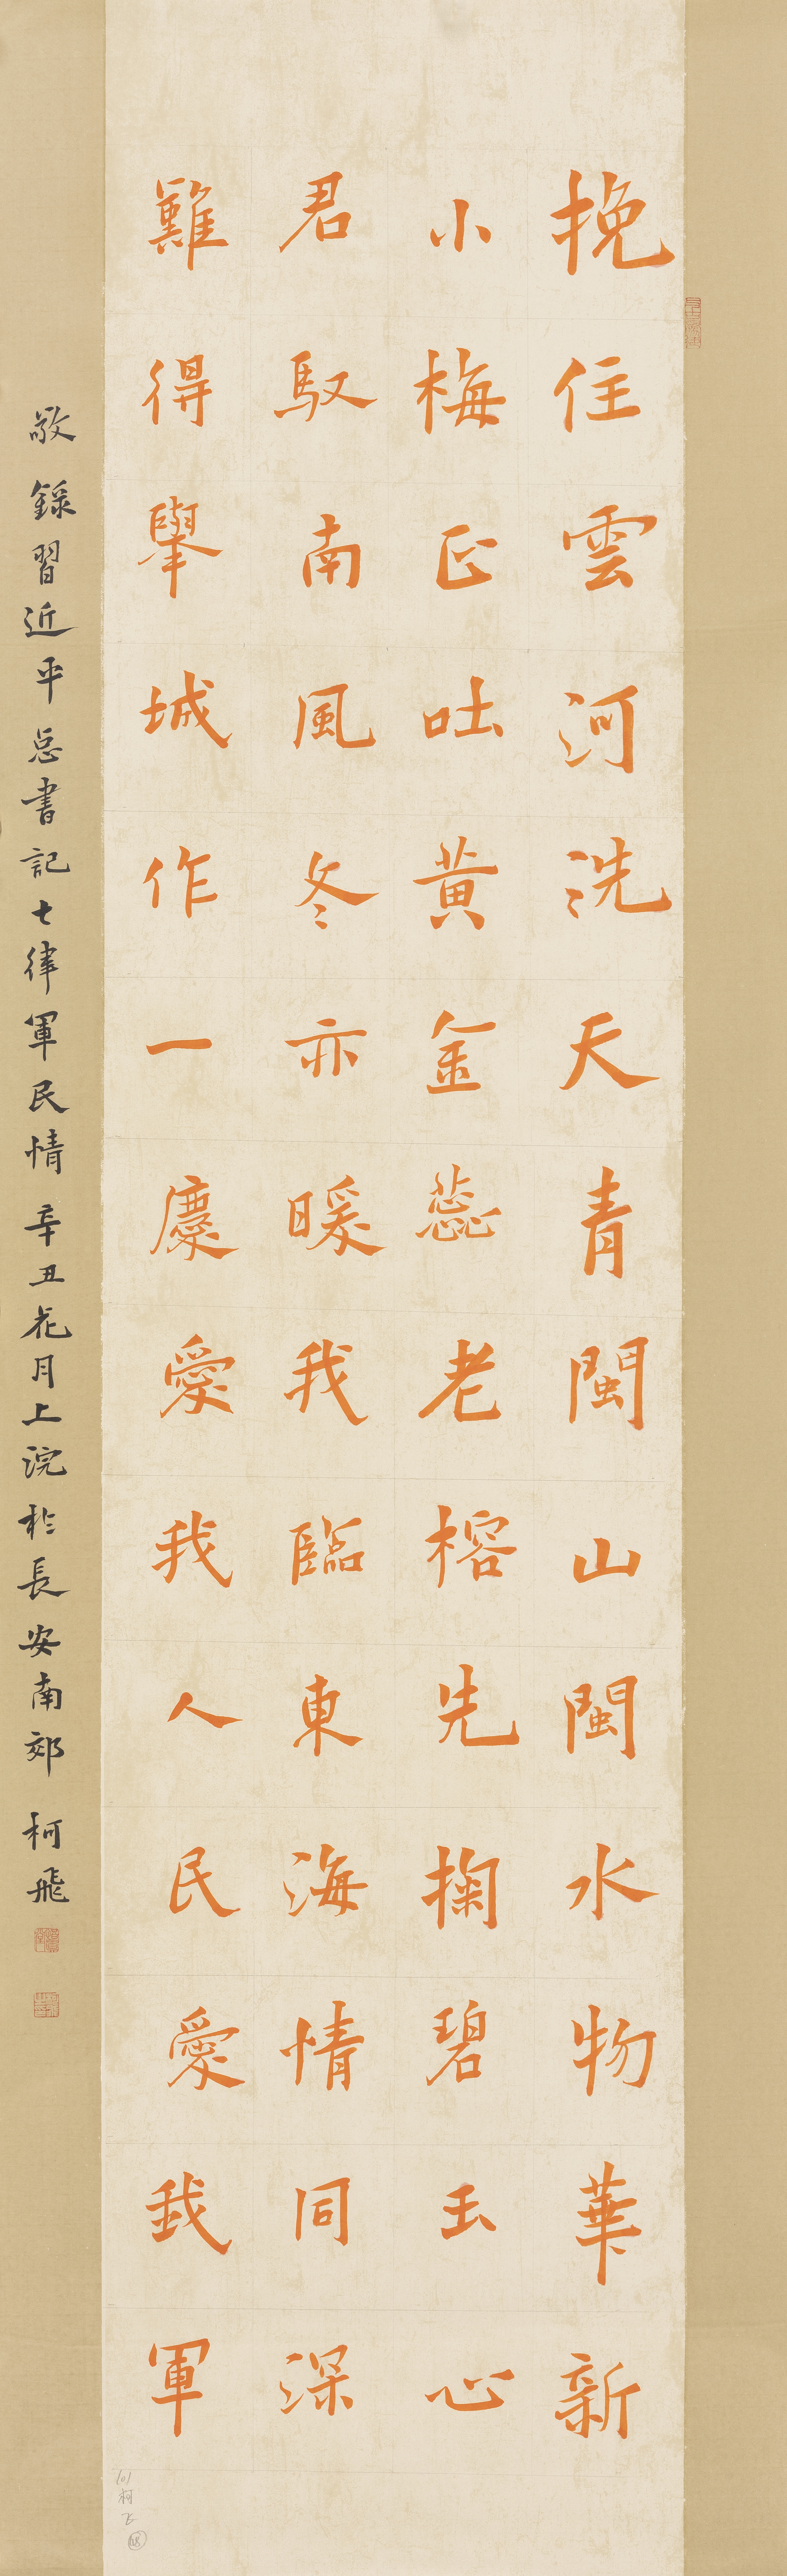 挽住雲河洗天青閩山閩水物華新
小梅正吐黄金蕊老榕先掬碧玉心
君馭南風冬亦暖我臨東海情同深
難得舉城作一慶愛我人民愛我軍
敬錄習近平总書記七律軍民情辛丑花月上浣於長安南郊柯飛